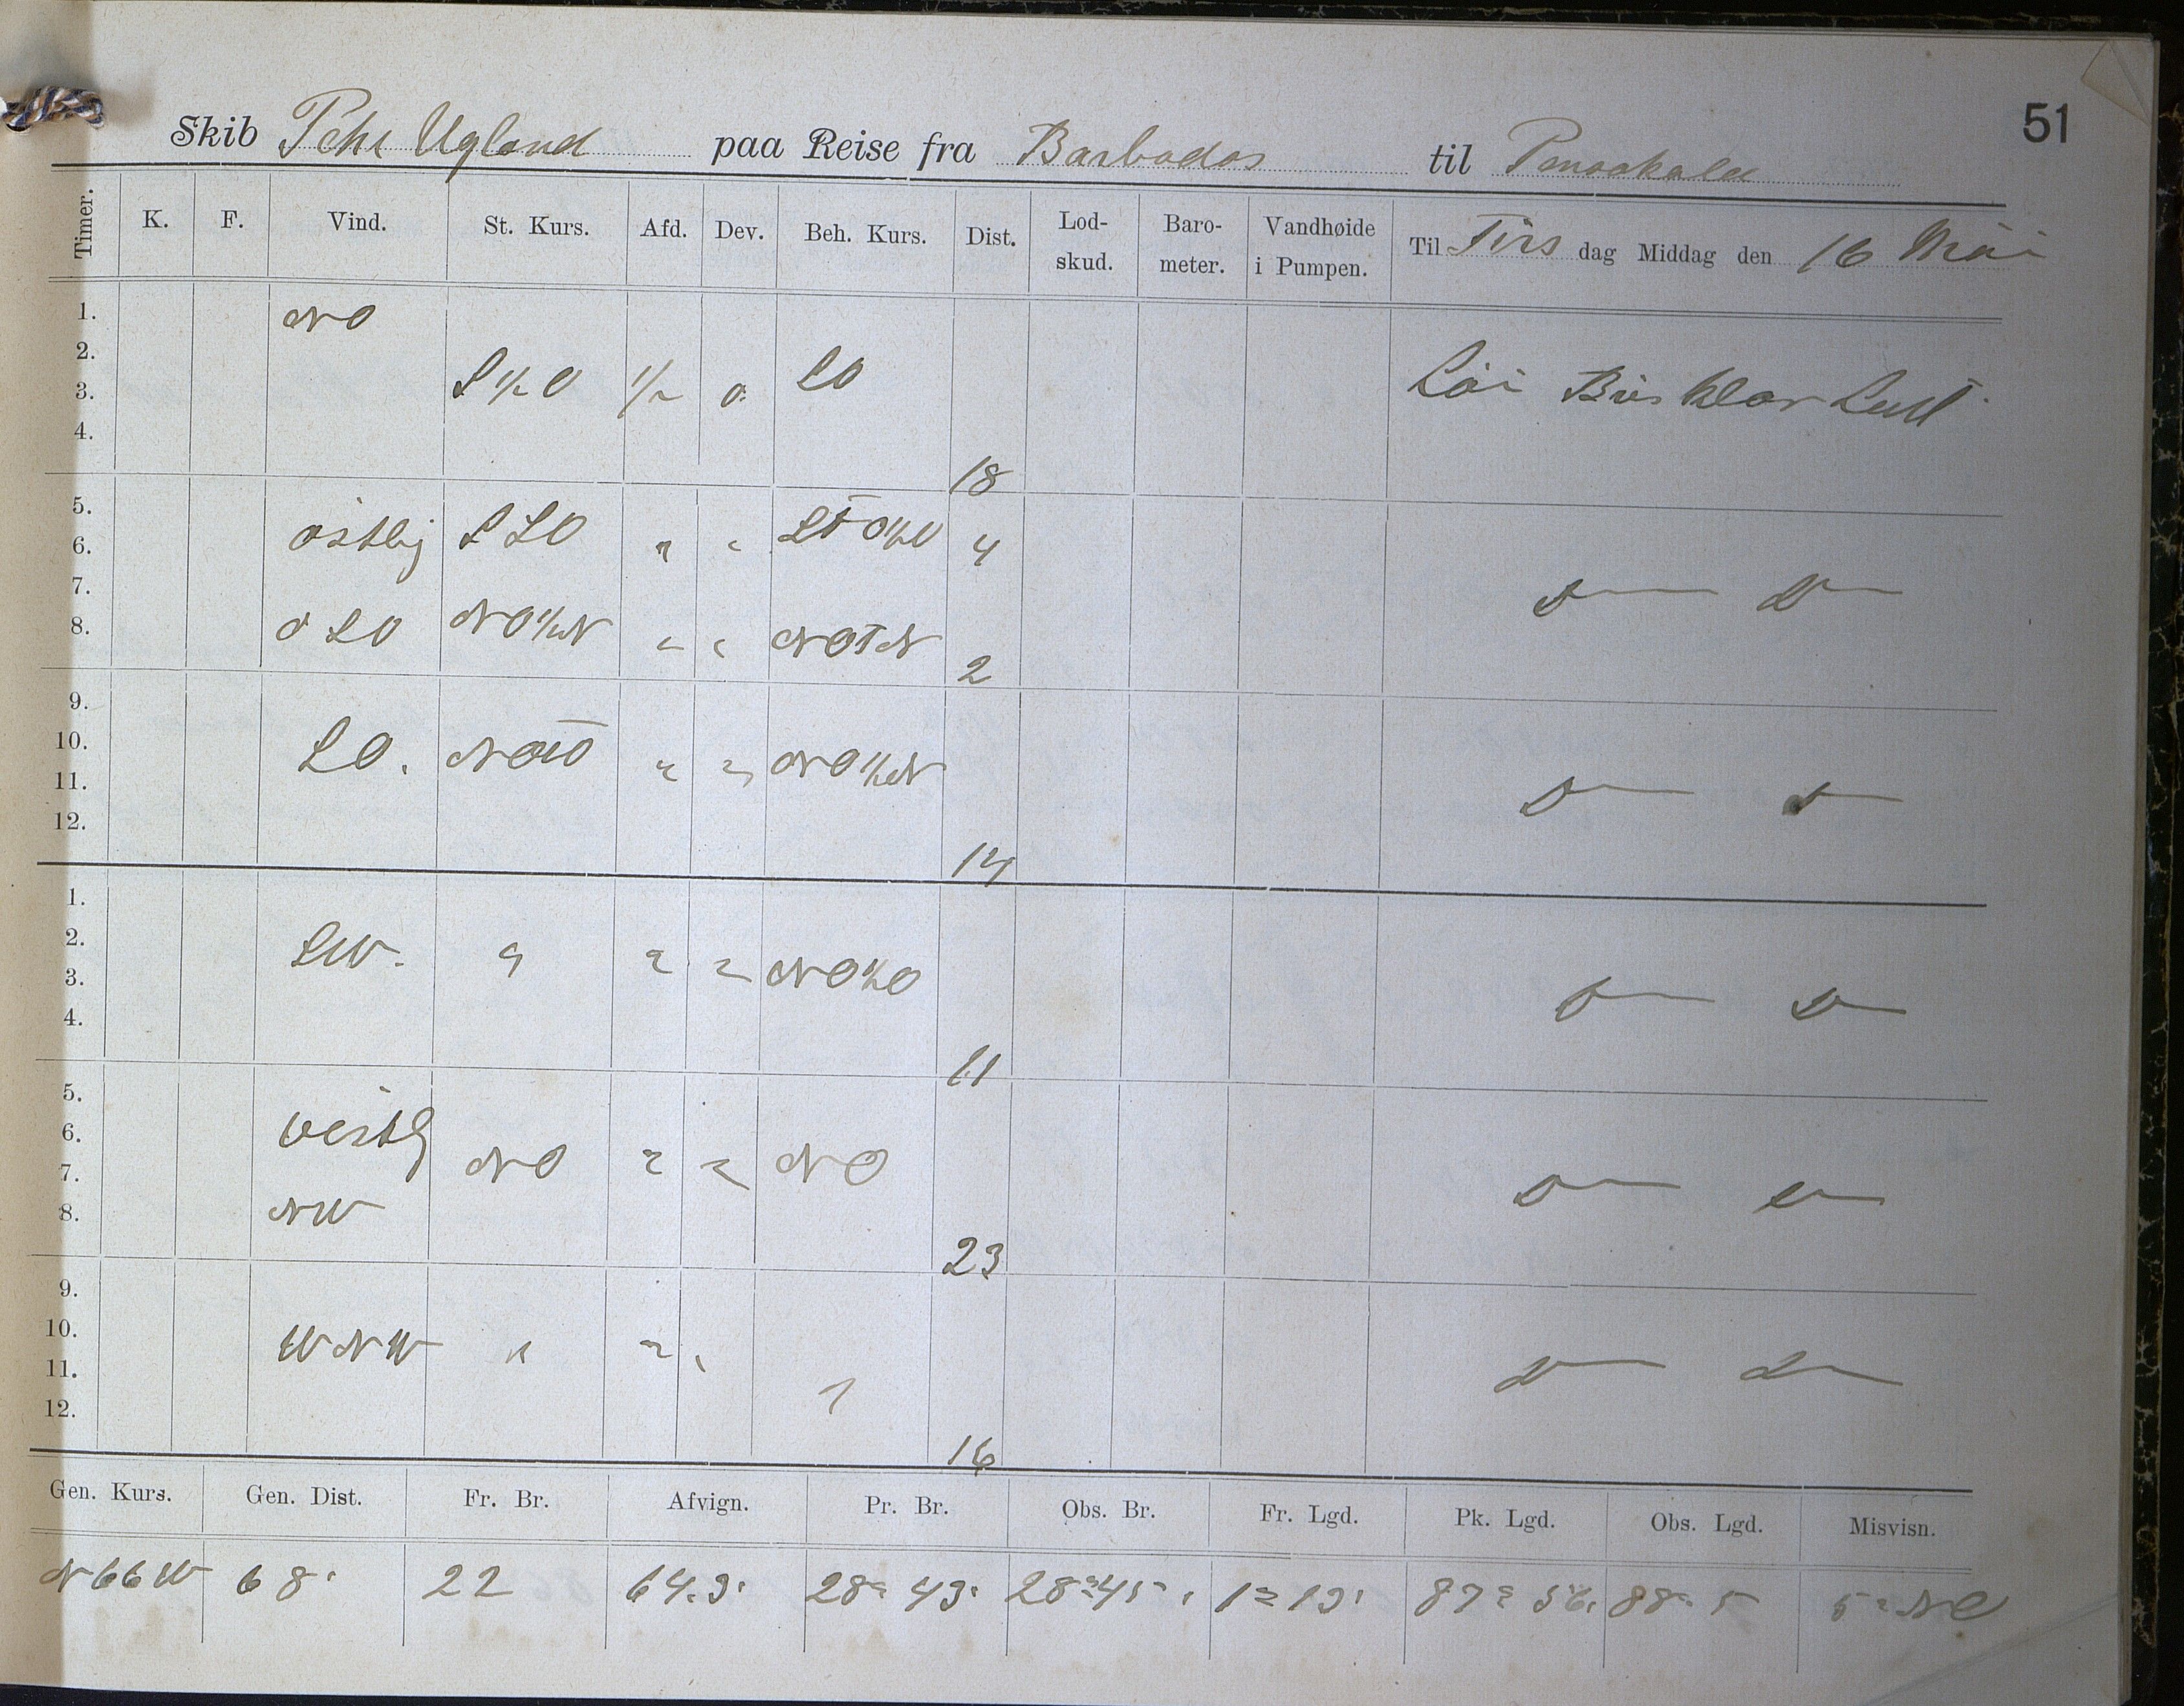 51
Skib Pehr Ugland paa Reise fra Barbados til Pensakola
Timer. K. F. Vind. St. Kurs. Afd. Dev. Beh. Kurs. Dist. Lod-skud. Baro-meter. Vandhøide i Pumpen. Til Tirs dag Middag den 16 Mai
1. NO
2.
3. S½O ½ 0 SO Lai Bris Klar Luft
4. 18
5.
6. østlig SSO " " StO½O 4
7. D— D—
8. OSO NO½N " " NOtN 2
9.
10. SO. NOtO " " NO½N
11. D— D—
12. 14
1.
2. SW. " " " NO½O
3. D— D—
4. 11
5.
6. vestlig
7. NO " " NO D— D—
8. NW 23
9.
10. WNW " " "
11. " D— D—
12. 16
Gen. Kurs. Gen. Dist. Fr. Br. Afvign. Pr. Br. Obs. Br. Fr. Lgd. Pk. Lgd. Obs. Lgd. Misvisn.
N66W 68' 22 28° 43' 28° 45' 1° 13' 87° 56' 88° 5